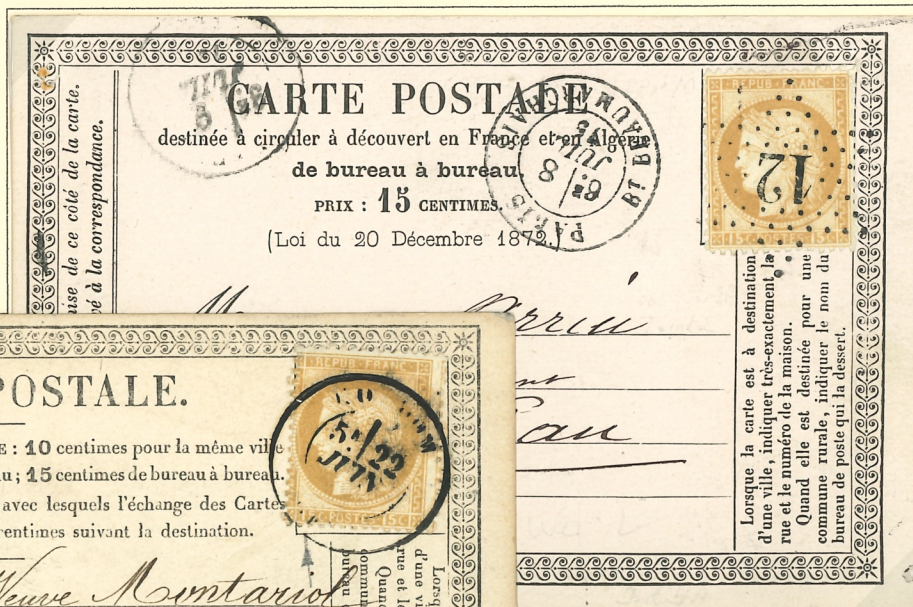 CARTE POSTALE
destinée à circuler à découvert en France et en Algérie
de bureau à bureau.
PRIX : 15 CENTIMES.
(Loi du 20 Décembre 1872.)
ise de ce côté de la carte.
vé à la correspondance.
JUIL
PARIS
Bt BEAUMARCHAIS
8
JUIL
REPUB FRANC
12
15c POSTES 15c
M
Lorsque la carte est à destination
d'une ville, indiquer très-exactement la
rue et le numéro de la maison.
Quand elle est destinée pour une
commune rurale, indiquer le nom du
bureau de poste qui la dessert.
POSTALE.
E : 10 centimes pour la même ville
au ; 15 centimes de bureau à bureau.
avec lesquels l'échange des Cartes
centimes suivant la destination.
REPUB FRANC
5E/22
15c POSTES 15c
Veuve Montariol
Lorsq
d'une vi
rue et le
Quand
commun
bureau